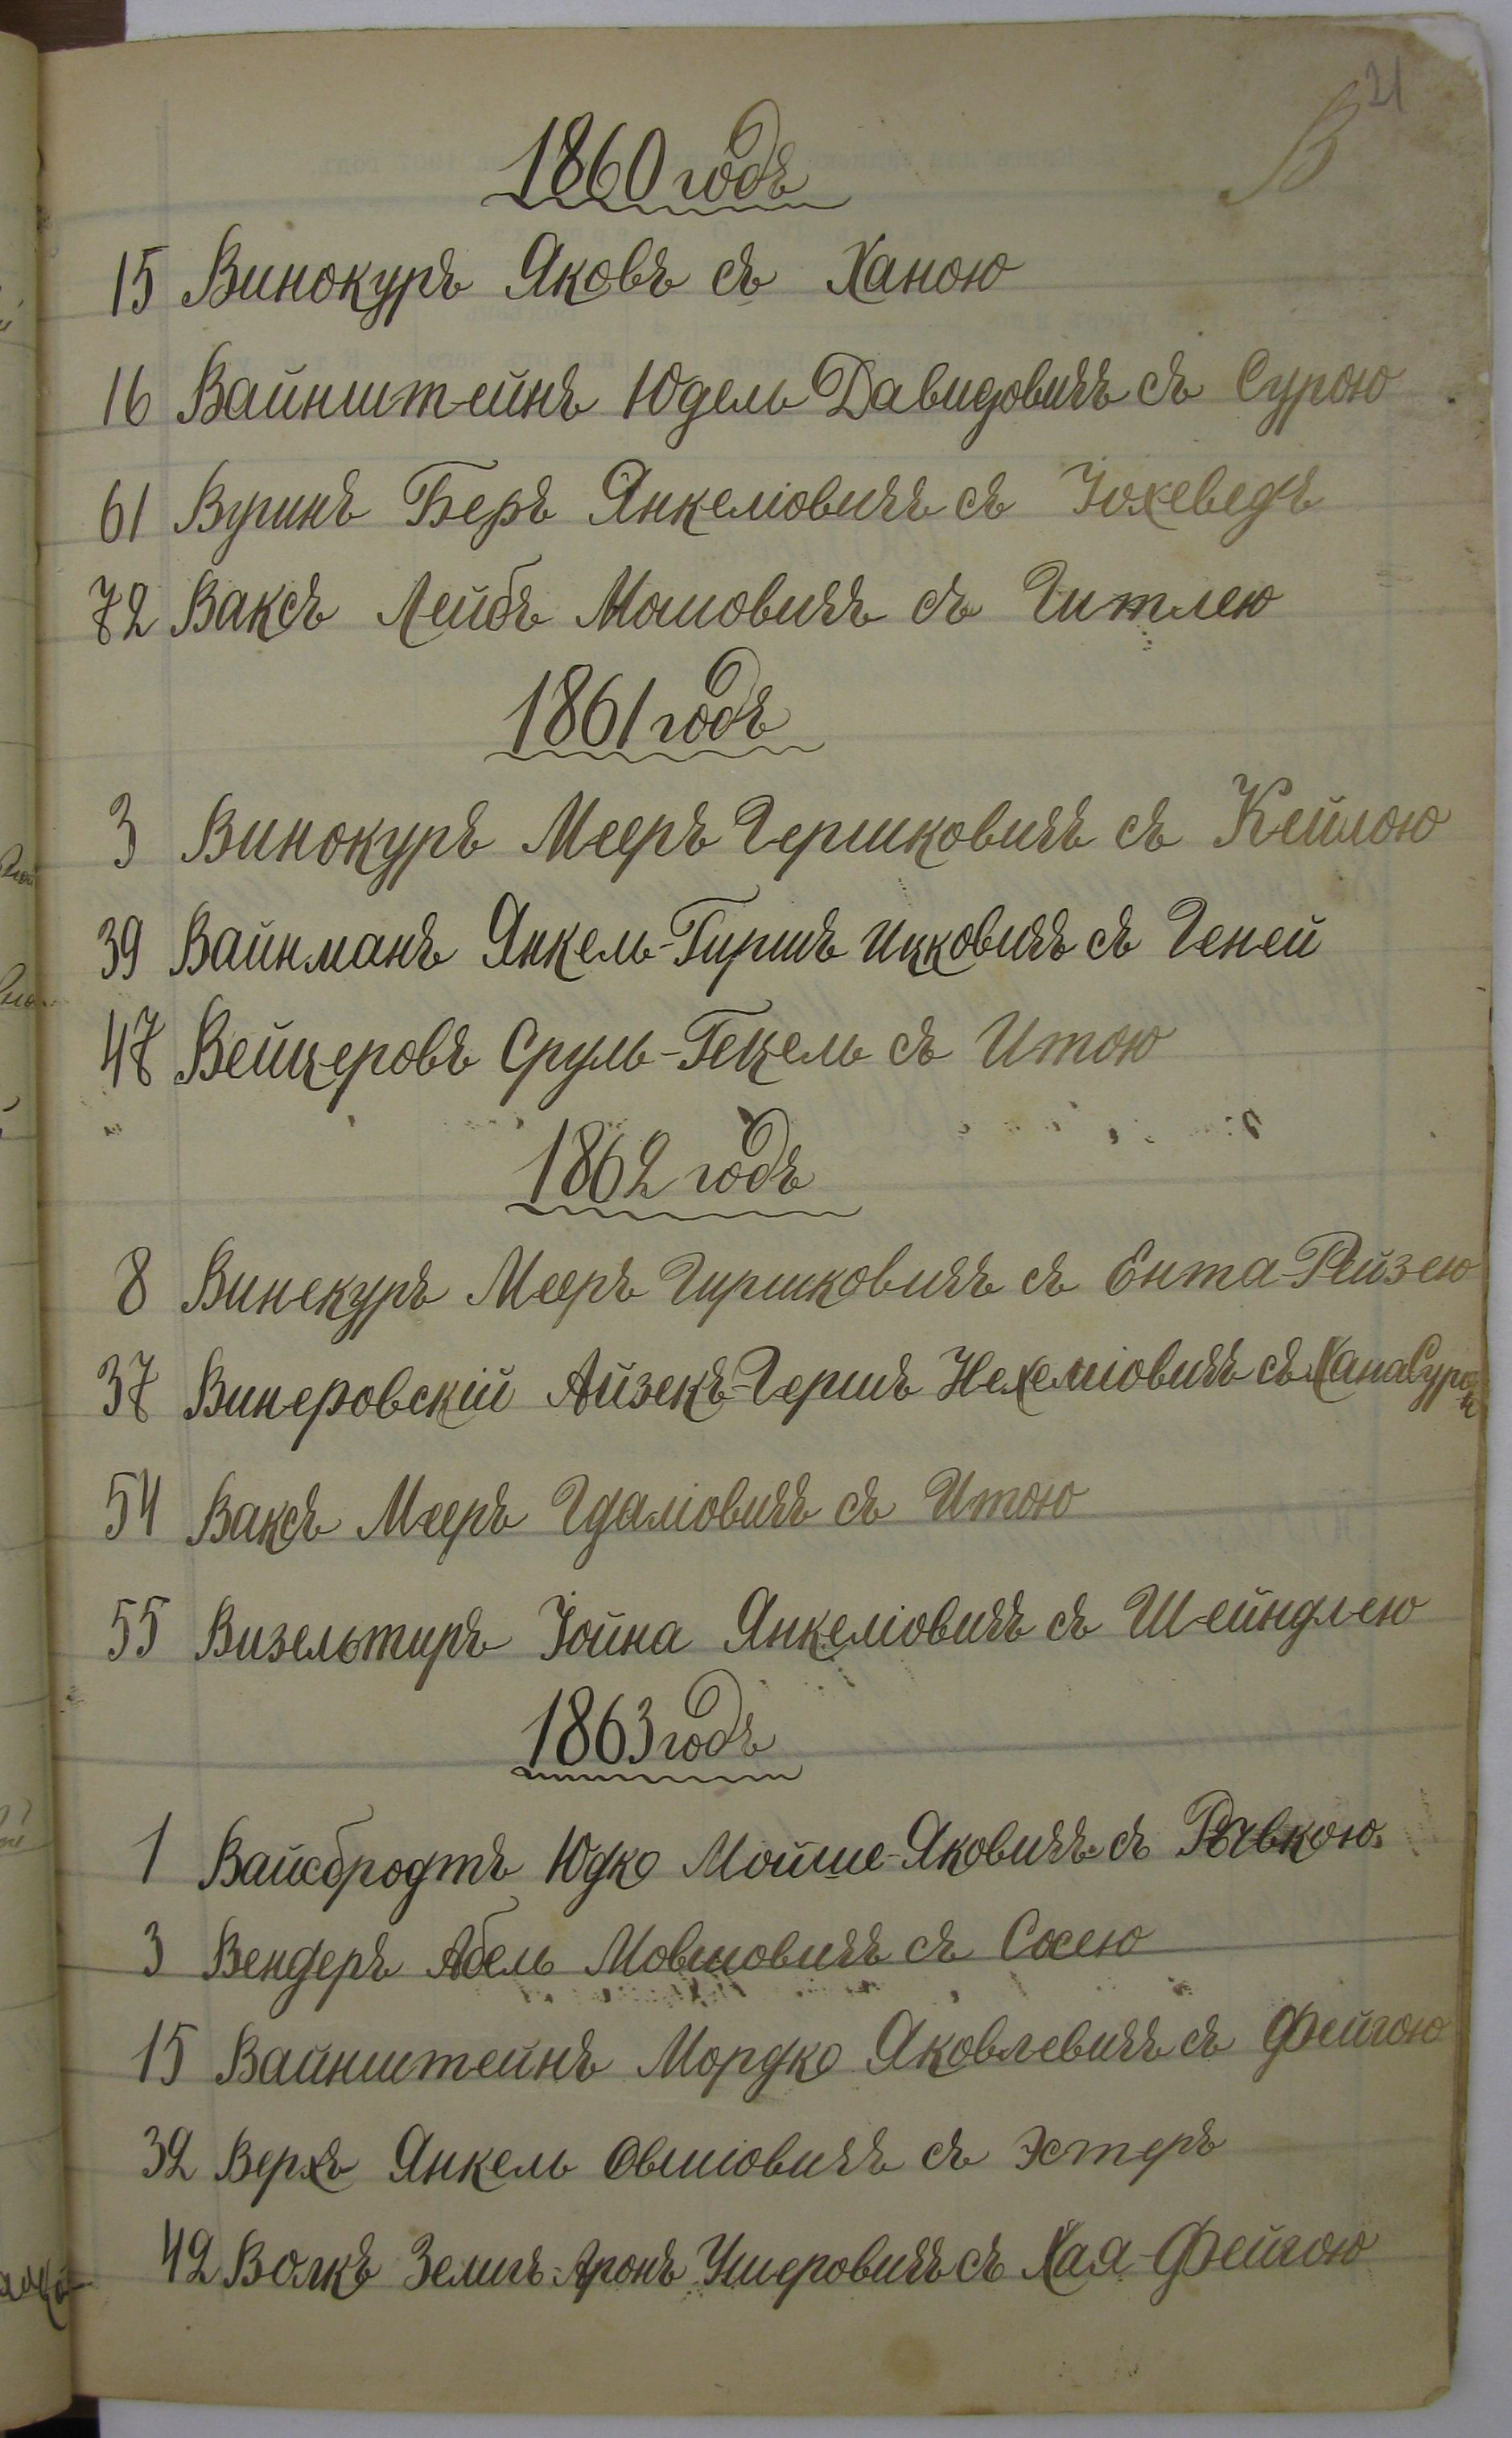 21
В
1860 годъ
15 Винокуръ Яковъ съ Ханою
16 Вайнштейнъ Юдель Давидовичъ съ Сурою
61 Вугинъ Беръ Янкеліовичъ съ Іохеведъ
72 Ваксъ Лейбъ Мошовичъ съ Гитлею
1861 годъ
3 Винокуръ Мееръ Гершковичъ съ Кейлою
39 Вайнманъ Янкель-Гиршъ Ицковичъ съ Геней
47 Вейцеровъ Сруль-Гецель съ Итою
1862 годъ
8 Винекуръ Мееръ Гиршковичъ съ Ента-Рейзею
37 Винеровскій Айзекъ-Гершъ Нехеміовичъ съ Хана Сурой
54 Ваксъ Мееръ Гдаліовичъ съ Итою
55 Визельтиръ Іойна Янкеліовичъ съ Шейндлею
1863 годъ
1 Вайсбродтъ Юдко Мойше-Яковичъ съ Рывкою
3 Вендеръ Абель Мовшовичъ съ Сосею
15 Вайнштейнъ Мордко Яковлевичъ съ Фейгою
32 Верхъ Янкель Овшіовичъ съ Эстеръ
42 Волкъ Зелигъ-Аронъ Ушеровичъ съ Хая-Фейгою